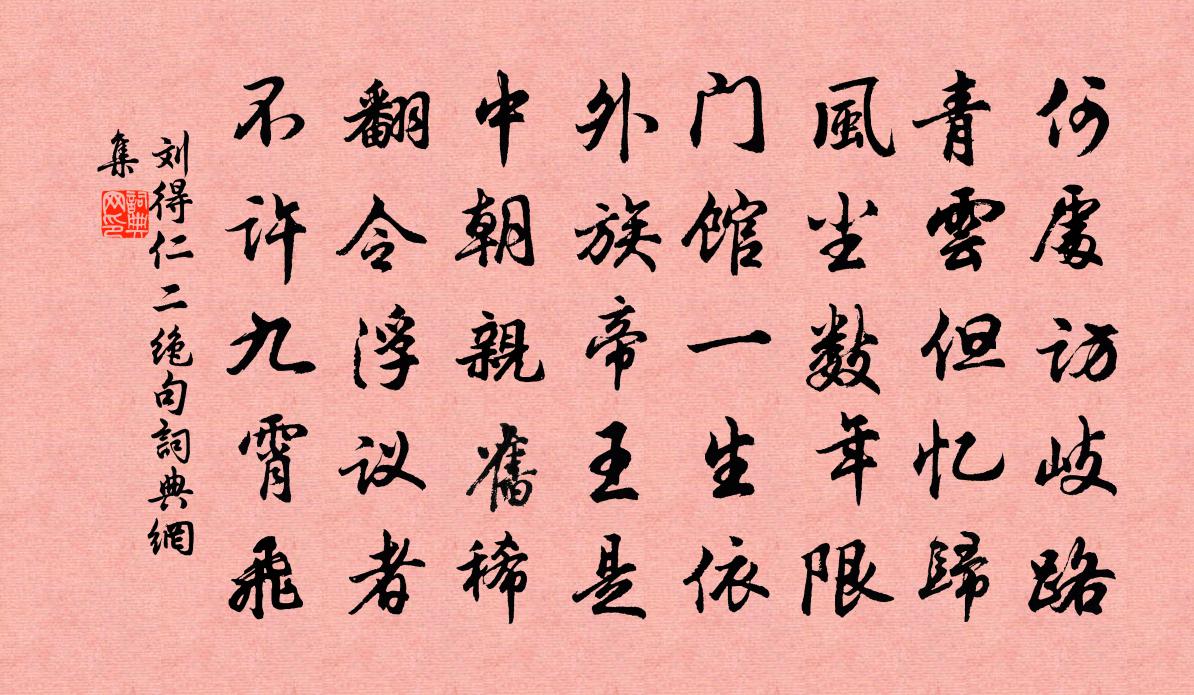 何處访岐路
青雲但忆歸
風尘數年限
门馆一生依
外族帝王是
中朝親舊稀
翻令浮议者
不许九霄飛
刘得仁二绝句詞典網
集
詞典
网印